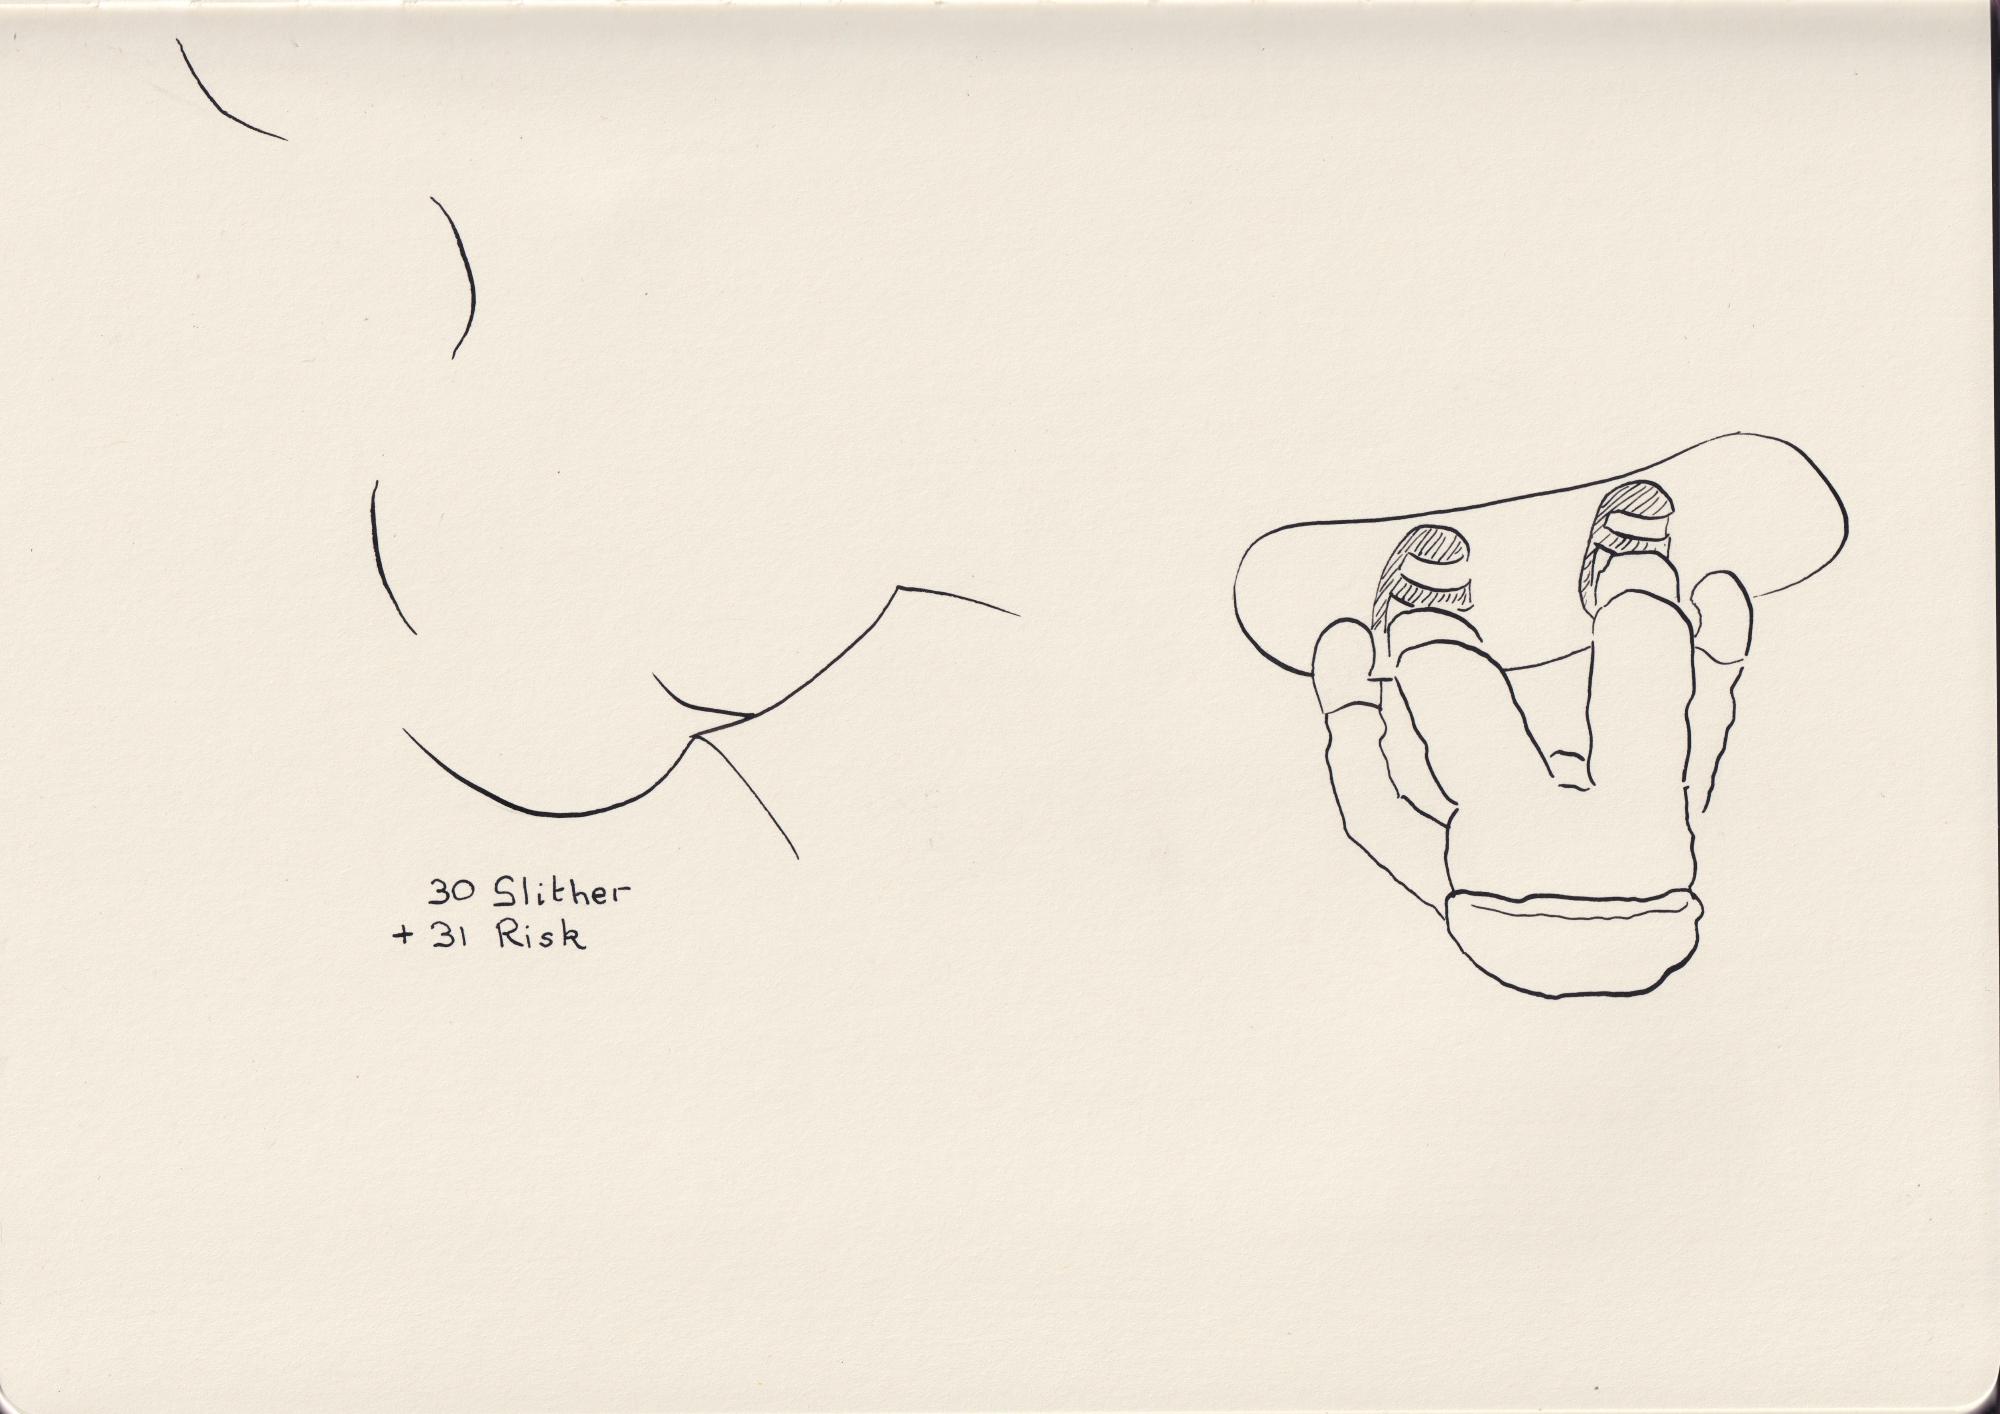 30 Slither
+ 31 Risk